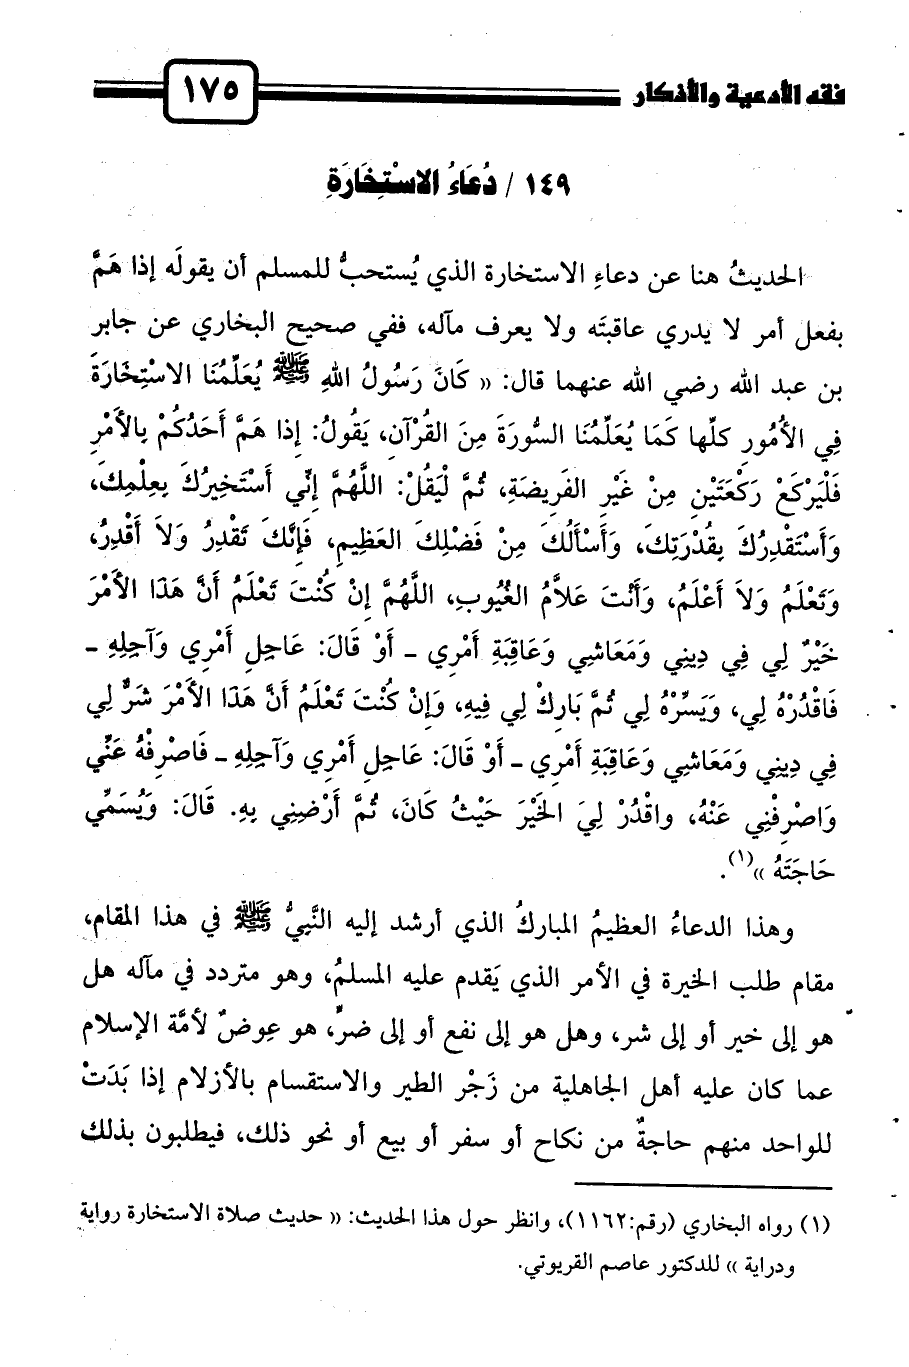 فقه الأدعية والأذكار ١٧٥
١٤٩ / دُعَاءُ الاسْتِخَارَةِ
الحديثُ هنا عن دعاءِ الاستخارة الذي يُستحبُّ للمسلم أن يقولَه إذا هَمَّ
بفعل أمر لا يدري عاقبتَه ولا يعرف مآله، ففي صحيح البخاري عن جابر
بن عبد الله رضي الله عنهما قال: « كَانَ رَسُولُ اللهِ ﷺ يُعَلِّمُنَا الاسْتِخَارَةَ
فِي الأُمُورِ كلِّها كَمَا يُعَلِّمُنَا السُّورَةَ مِنَ القُرْآنِ، يَقُولُ: إِذا هَمَّ أَحَدُكُمْ بِالأَمْرِ
فَلْيَرْكَعْ رَكْعَتَيْنِ مِنْ غَيْرِ الفَرِيضَةِ، ثُمَّ لْيَقُلْ: اللَّهُمَّ إِنِّي أَسْتَخِيرُكَ بِعِلْمِكَ،
وَأَسْتَقْدِرُكَ بِقُدْرَتِكَ، وَأَسْأَلُكَ مِنْ فَضْلِكَ العَظِيمِ، فَإِنَّكَ تَقْدِرُ وَلاَ أَقْدِرُ،
وَتَعْلَمُ وَلاَ أَعْلَمُ، وَأَنْتَ عَلاَّمُ الغُيُوبِ، اللهُمَّ إِنْ كُنْتَ تَعْلَمُ أَنَّ هَذَا الأَمْرَ
خَيْرٌ لِي فِي دِينِي وَمَعَاشِي وَعَاقِبَةِ أَمْرِي - أَوْ قَالَ: عَاجِلِ أَمْرِي وَآجِلِهِ -
فَاقْدُرْهُ لِي، وَيَسِّرْهُ لِي ثُمَّ بَارِكْ لِي فِيهِ، وَإِنْ كُنْتَ تَعْلَمُ أَنَّ هَذَا الأَمْرَ شَرٌّ لِي
فِي دِينِي وَمَعَاشِي وَعَاقِبَةِ أَمْرِي - أَوْ قَالَ: عَاجِلِ أَمْرِي وَآجِلِهِ - فَاصْرِفْهُ عَنِّي
وَاصْرِفْنِي عَنْهُ، واقْدُرْ لِيَ الخَيْرَ حَيْثُ كَانَ، ثُمَّ أَرْضِنِي بِهِ. قَالَ: وَيُسَمِّي
حَاجَتَهُ »(١).
وهذا الدعاءُ العظيمُ المباركُ الذي أرشد إليه النَّبيُّ ﷺ في هذا المقام،
مقام طلب الخيرة في الأمر الذي يَقدم عليه المسلمُ، وهو متردد في مآله هل
هو إلى خير أو إلى شر، وهل هو إلى نفع أو إلى ضرٍّ، هو عِوضٌ لأمَّة الإسلام
عما كان عليه أهل الجاهلية من زَجْر الطير والاستقسام بالأزلام إذا بَدَتْ
للواحد منهم حاجةٌ من نكاح أو سفر أو بيع أو نحو ذلك، فيطلبون بذلك
(١) رواه البخاري (رقم:١١٦٢)، وانظر حول هذا الحديث: « حديث صلاة الاستخارة رواية
ودراية » للدكتور عاصم القريوتي.